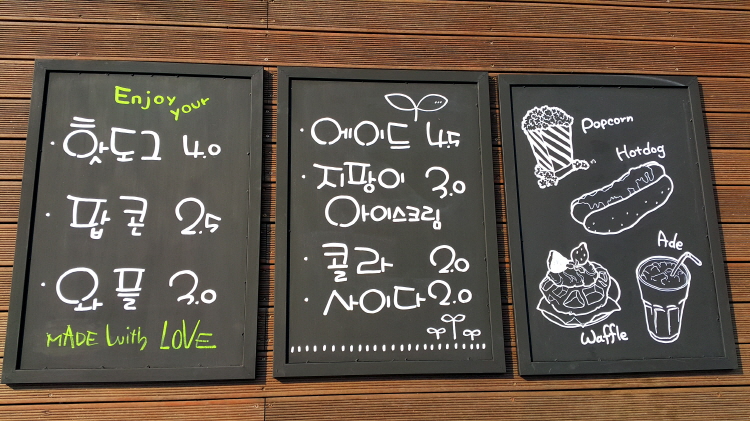 Enjoy your
· 핫도그 4.0
· 팝콘 2.5
· 와플 3.0
MADE with LOVE
· 에이드 4.5
· 지팡이 3.0
아이스크림
· 콜라 2.0
· 사이다 2.0
Popcorn
Hotdog
Ade
Waffle